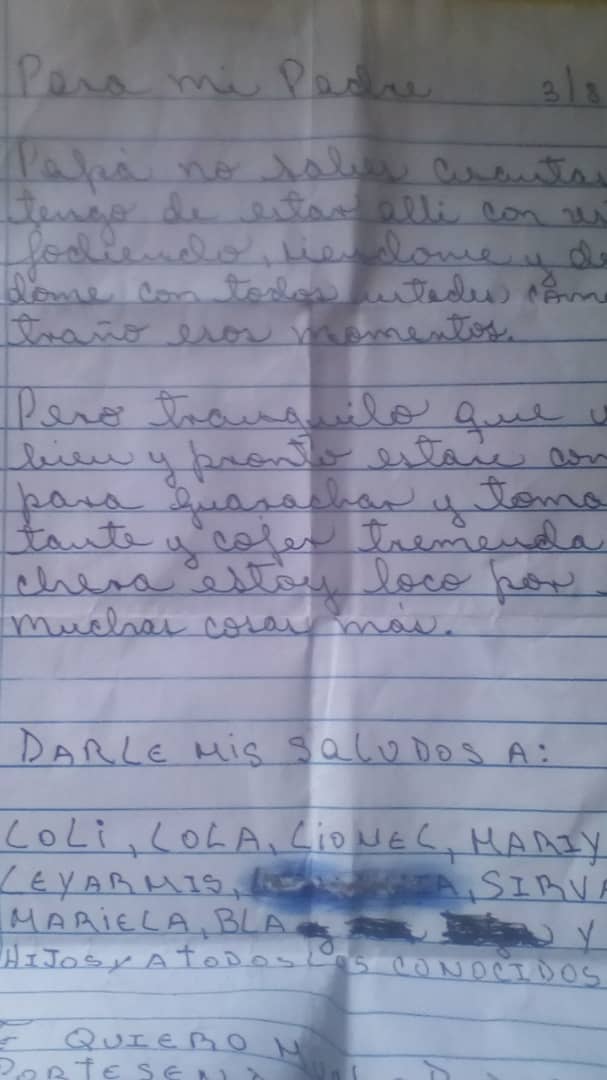 Para mi Padre 3/8
Papá no sabes cuantas
tengo de estar alli con
jodiendo, riendome y de
dome con todos ustedes, como
traño esos momentos.
Pero tranquilo que
bien y pronto estare con
para guarachar y toma
tante y cojer tremenda
chera estoy loco por
muchas cosas más.
DARLE MIS SALUDOS A:
LOLI, LOLA, LIONEL, MARIY
LEYARMIS, SIRVA
MARIELA, BLA Y
HIJOS Y A TODOS LOS CONOCIDOS
E QUIERO
PORTESEN